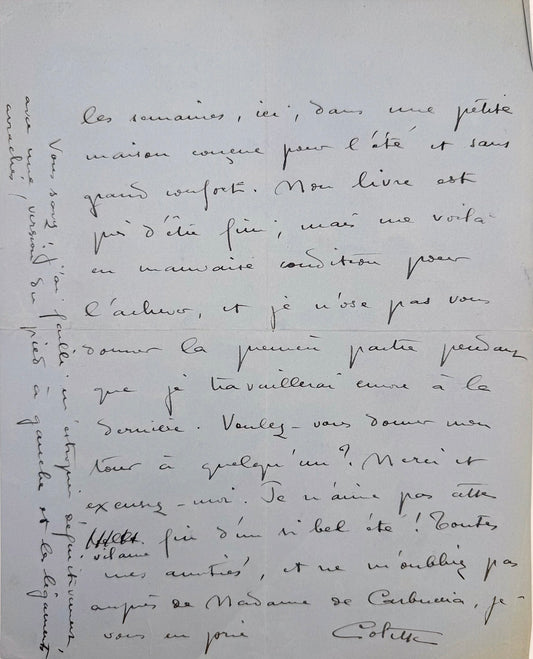 les semaines, ici, dans une petite
maison conçue pour l'été et sans
grand confort. Mon livre est
près d'être fini, mais me voilà
en mauvaise condition pour
l'achever, et je n'ose pas vous
donner la première partie pendant
que je travaillerai encore à la
dernière. Voulez-vous donner mon
tour à quelqu'un? Merci et
excusez-moi. Je n'aime pas cette
vilaine fin d'un si bel été! Toutes
mes amitiés, et ne m'oubliez pas
auprès de Madame de Carbuccia, je
vous en prie
Colette
Vous savez j'ai failli m'estropier définitivement,
avec une version du pied à gauche et les ligaments
arrachés